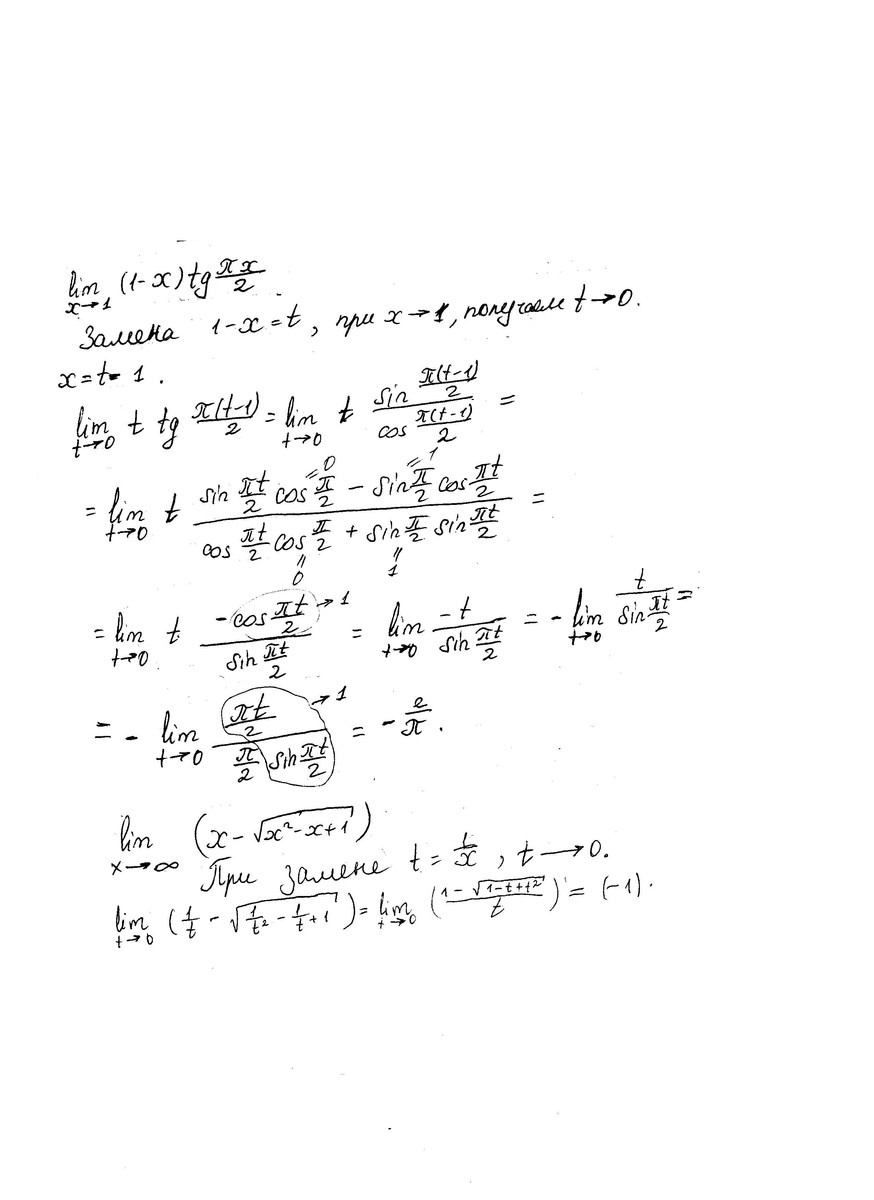 lim_{x→1} (1-x) tg πx/2
Замена 1-x=t, при x→1, получаем t→0.
x=t-1.
lim_{t→0} t tg π(t-1)/2 = lim_{t→0} t (sin π(t-1)/2)/(cos π(t-1)/2) =
= lim_{t→0} t (sin πt/2 cos π/2 (=0) - sin π/2 (=1) cos πt/2)/(cos πt/2 cos π/2 (=0) + sin π/2 (=1) sin πt/2) =
= lim_{t→0} t (-cos πt/2 →1)/(sin πt/2) = lim_{t→0} (-t)/(sin πt/2) = - lim_{t→0} t/(sin πt/2) =
= - lim_{t→0} (πt/2)/(π/2 sin πt/2) →1 = - 2/π.
lim_{x→∞} (x-√(x²-x+1))
При замене t=1/x, t→0.
lim_{t→0} (1/t - √(1/t² - 1/t +1)) = lim_{t→0} ((1-√(1-t+t²))/t) = (-1).